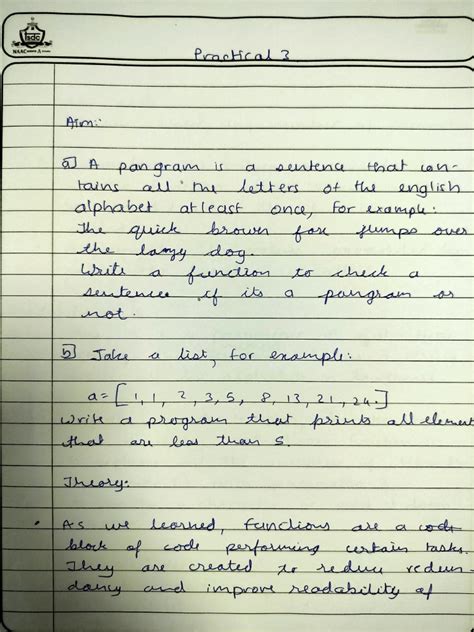 tsdc
NAAC
Practical 3
Aim:
a] A pangram is a sentence that con-
tains all the letters of the english
alphabet atleast once, for example:
The quick brown fox jumps over
the lazy dog.
Write a function to check a
sentence if its a pangram or
not.
b] Take a list, for example:
a = [1, 1, 2, 3, 5, 8, 13, 21, 24.]
Write a program that prints all element
that are less than 5.
Theory:
• As we learned, functions are a code
block of code performing certain tasks.
They are created to reduce redun
dancy and improve readability of